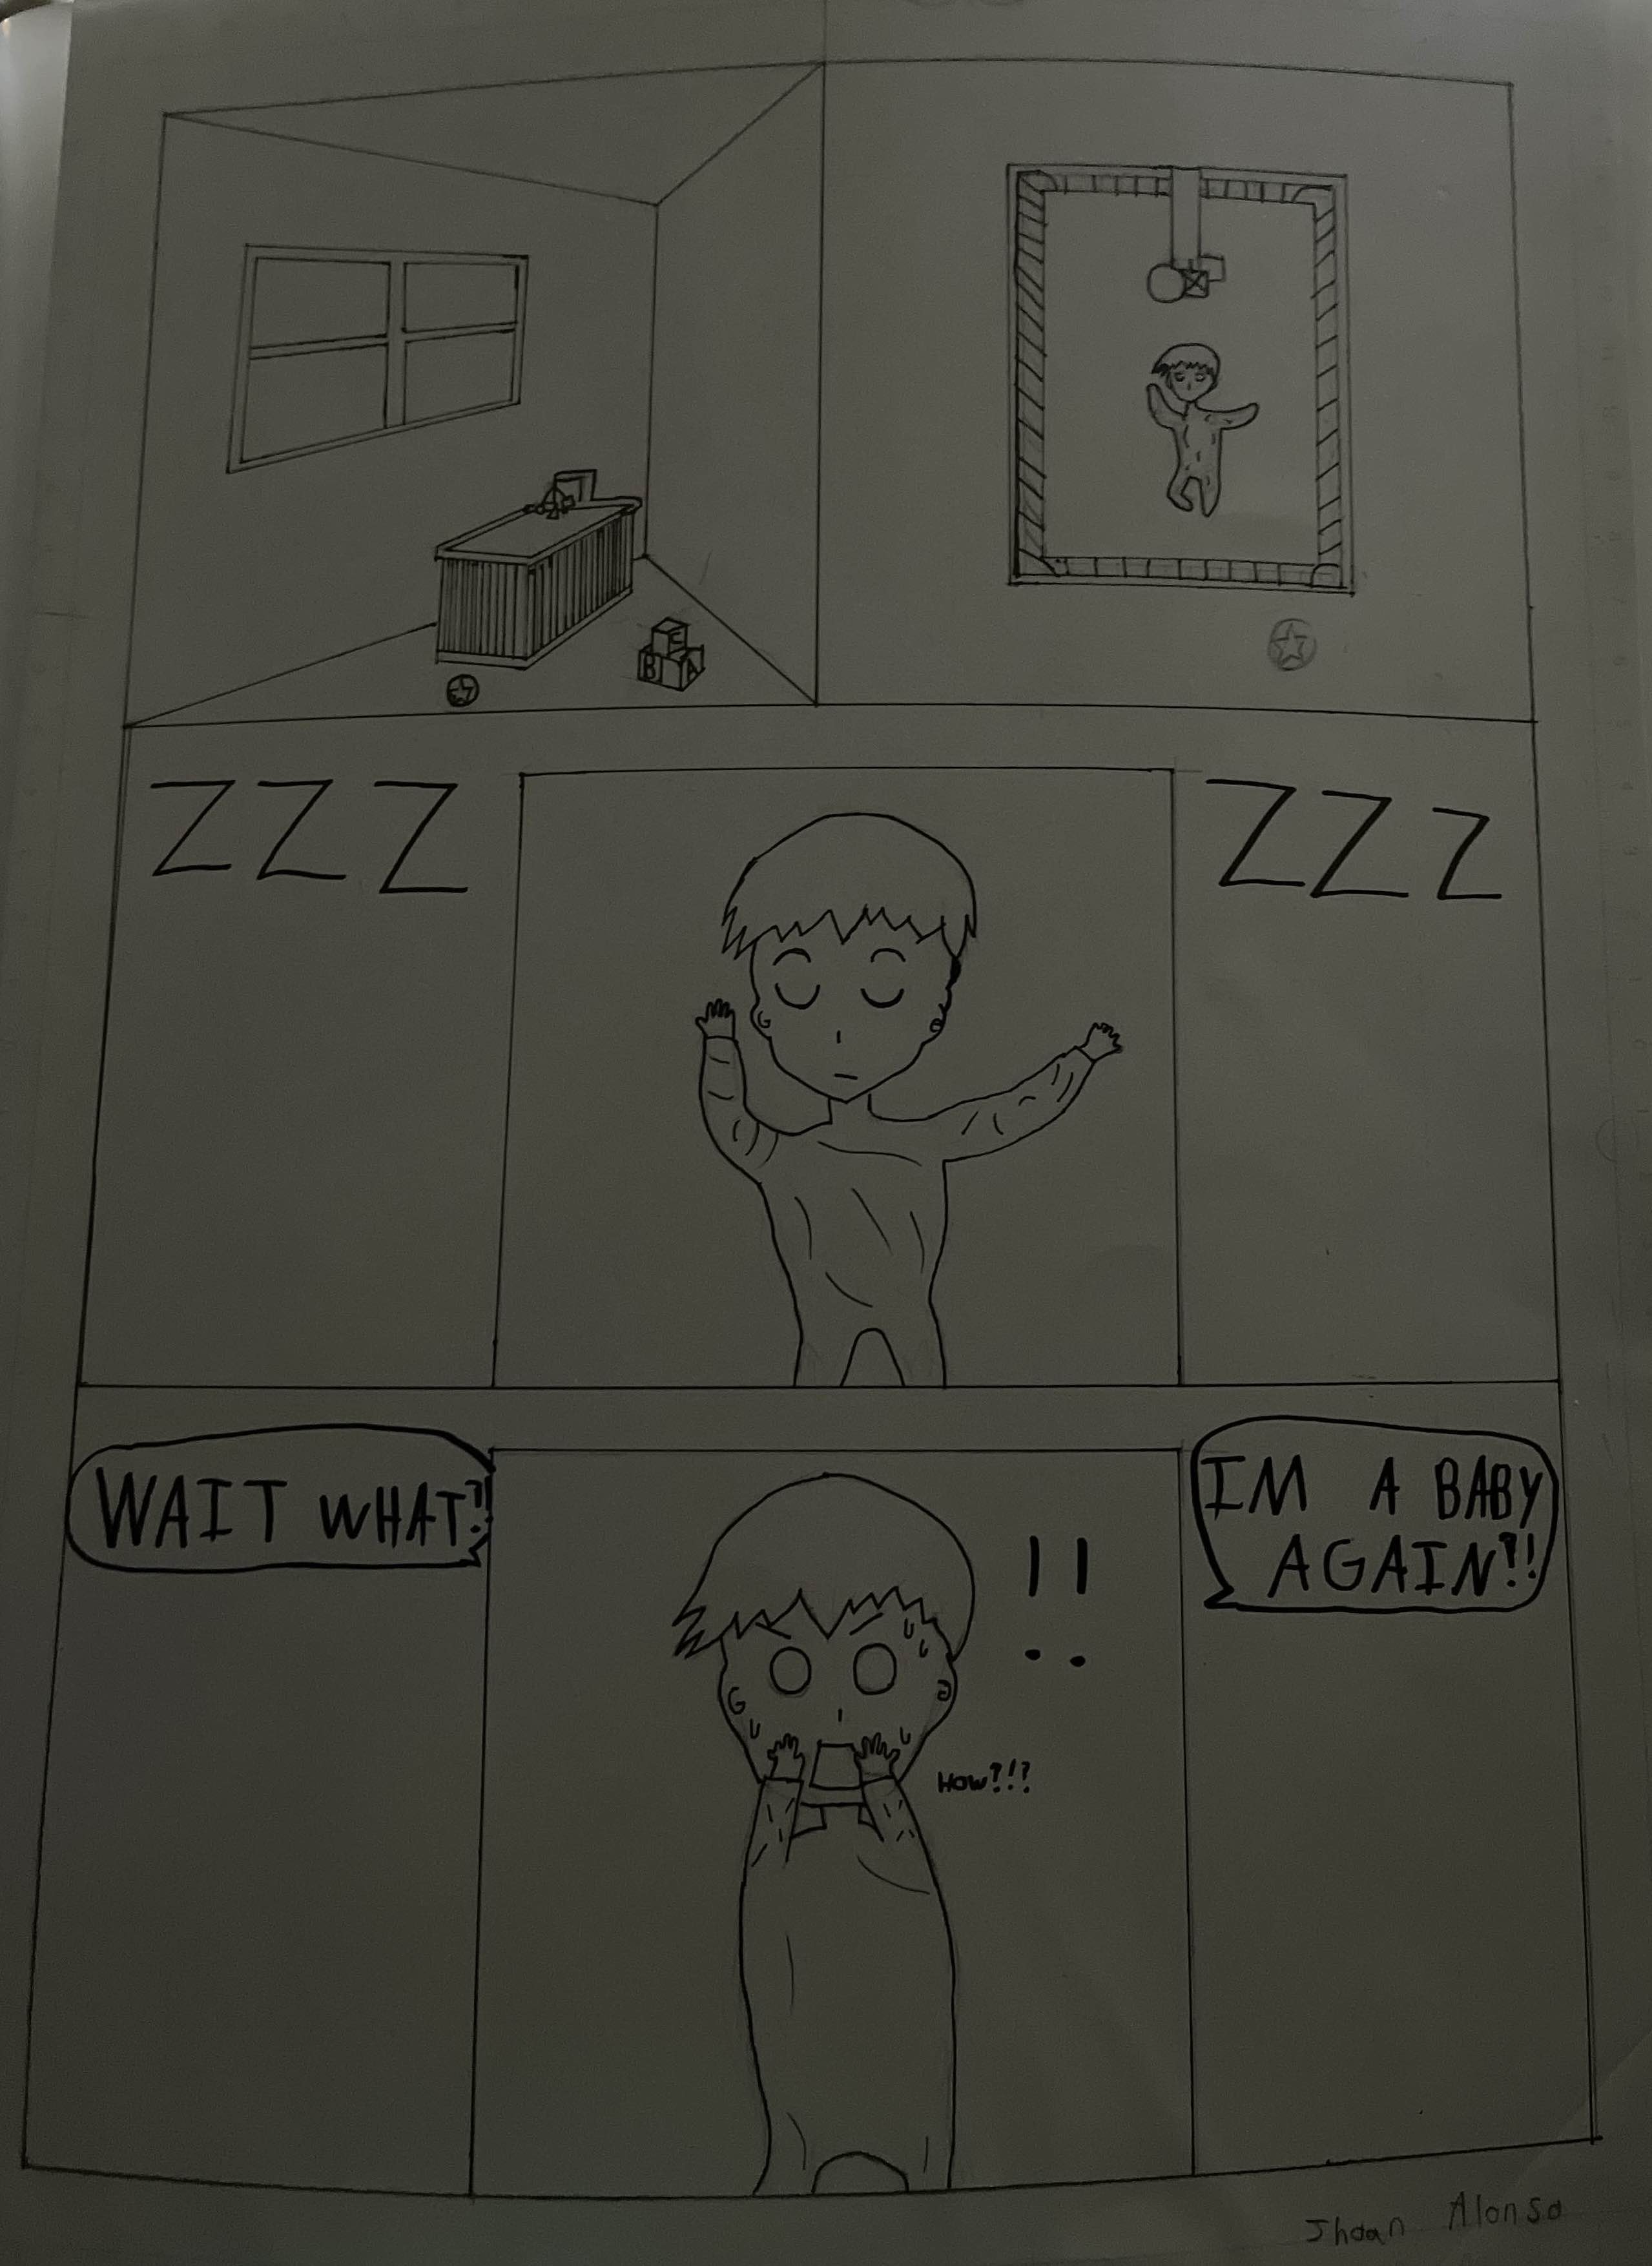 C
B A
ZZZ
ZZZ
WAIT WHAT?!
IM A BABY
AGAIN?!!
!!
HOW?!?
Jhoan Alonso